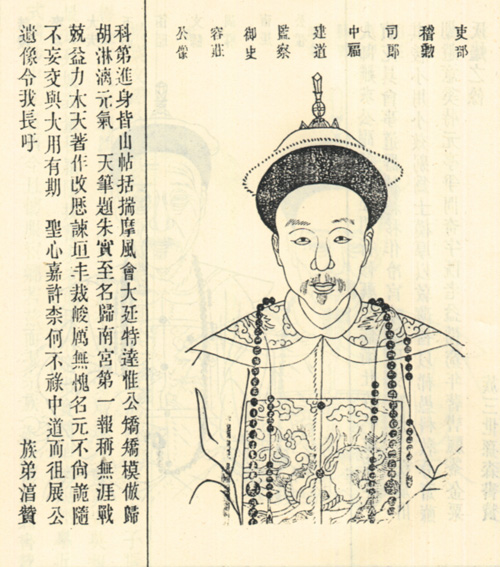 吏部
稽勳
司郎
中福
建道
監察
御史
容莊
公像
科第進身皆由帖括揣摩風會大廷特達惟公矯矯模倣歸
胡淋漓元氣　天筆題朱實至名歸南宮第一報稱無涯戰
兢益力木天著作改歷諫垣丰裁峻厲無愧名元不尙詭隨
不妄交與大用有期　聖心嘉許柰何不祿中道而徂展公
遺像令我長吁　族弟贊